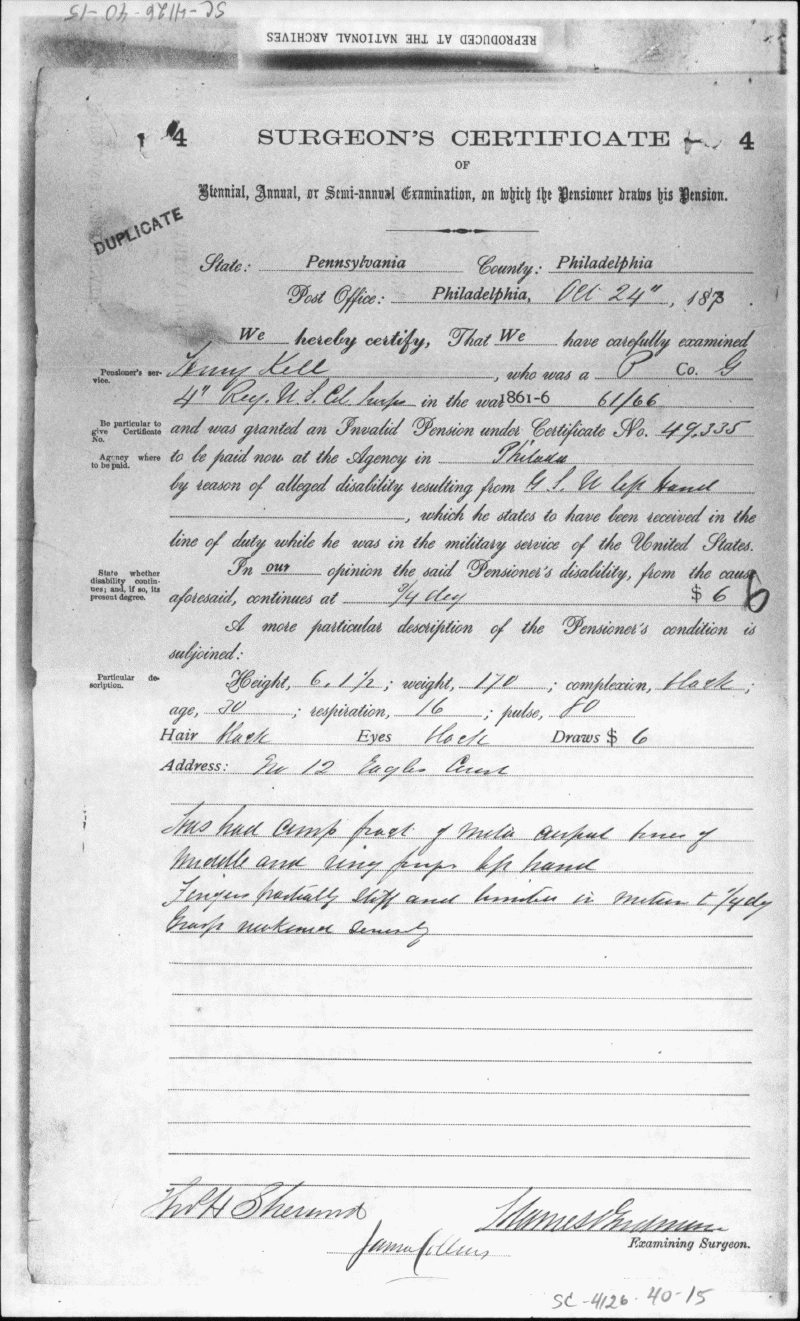 SC-4126-40-15
REPRODUCED AT THE NATIONAL ARCHIVES
4 SURGEON'S CERTIFICATE 4
OF
Biennial, Annual, or Semi-annual Examination, on which the Pensioner draws his Pension.
DUPLICATE
State: Pennsylvania County: Philadelphia
Post Office: Philadelphia, Oct 24", 1873.
We hereby certify, That We have carefully examined
Pensioner's service. Kell, who was a P Co. G
4" Reg. U. S. Col Troops in the war 1861-6 61/66
Be particular to give Certificate No. and was granted an Invalid Pension under Certificate No. 49,335
Agency where to be paid. to be paid now at the Agency in Philada
by reason of alleged disability resulting from G S W left hand
, which he states to have been received in the
line of duty while he was in the military service of the United States.
In our opinion the said Pensioner's disability, from the cause
State whether disability continues; and, if so, its present degree. aforesaid, continues at 3/4 deg $ 6 6
A more particular description of the Pensioner's condition is
subjoined:
Particular description. Height, 6.1 1/2; weight, 170; complexion, black;
age, 30; respiration, 16; pulse, 80
Hair black Eyes black Draws $ 6
Address: No 12 Eagles Court
Has had comp fract of meta carpal bones of
Middle and ring fingers left hand
Fingers partially stiff and limited in motion
Grasp weakened
Examining Surgeon.
SC-4126-40-15